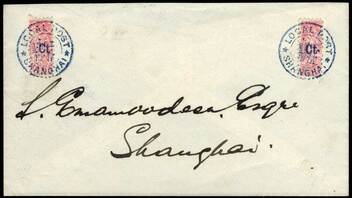 LOCAL POST
1 Ct.
SHANGHAI
LOCAL POST
1 Ct.
SHANGHAI
S. Emamoodeen Esqre
Shanghai.